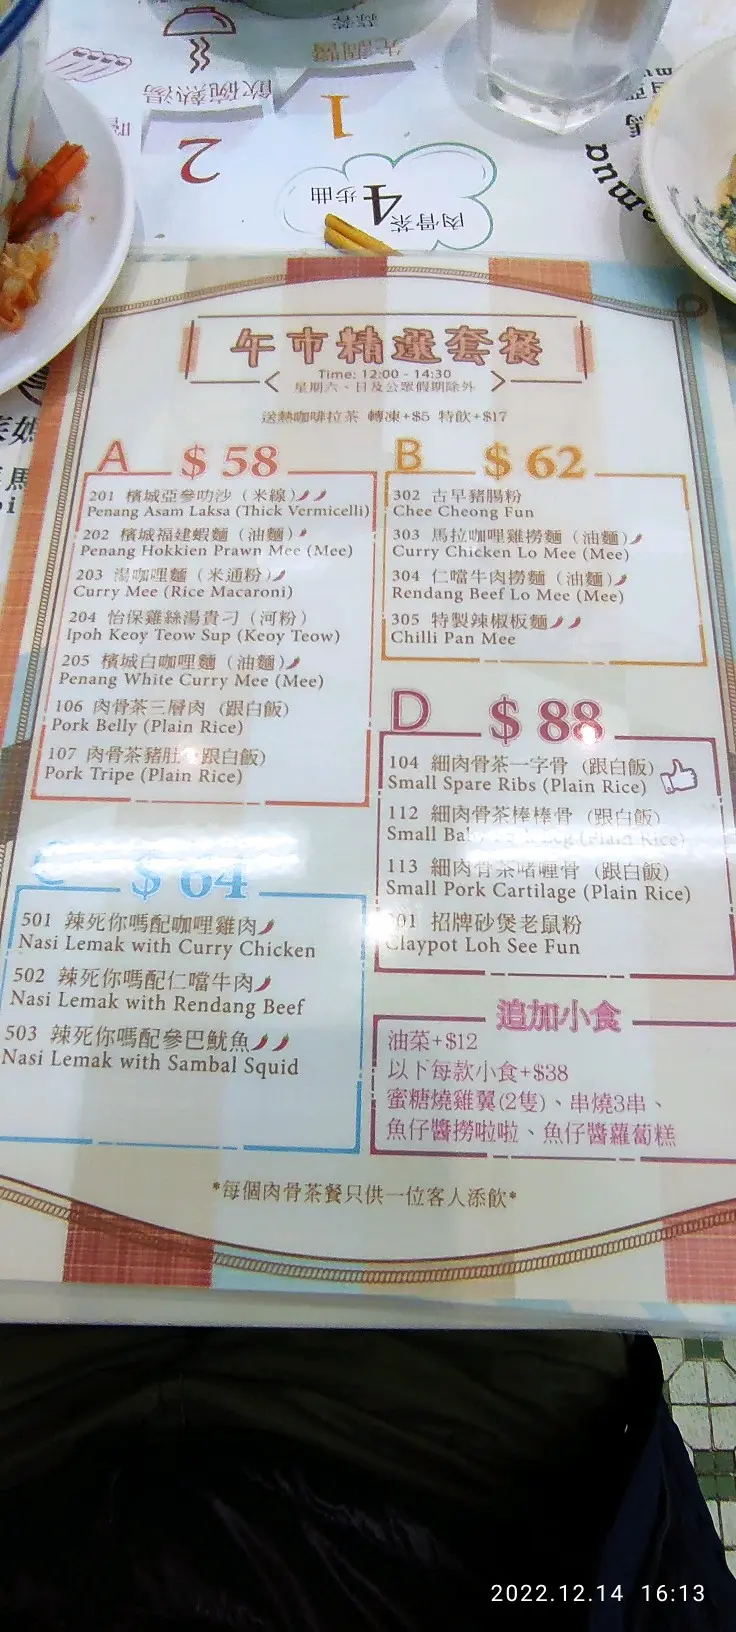 飲碗熱湯
先調醬
1
2
肉骨茶
4
步曲
午市精選套餐
Time: 12:00 - 14:30
星期六、日及公眾假期除外
送熱咖啡拉茶 轉凍+$5 特飲+$17
A $58
201 檳城亞參叻沙（米線）
Penang Asam Laksa (Thick Vermicelli)
202 檳城福建蝦麵（油麵）
Penang Hokkien Prawn Mee (Mee)
203 湯咖哩麵（米通粉）
Curry Mee (Rice Macaroni)
204 怡保雞絲湯貴刁（河粉）
Ipoh Keoy Teow Sup (Keoy Teow)
205 檳城白咖哩麵（油麵）
Penang White Curry Mee (Mee)
106 肉骨茶三層肉（跟白飯）
Pork Belly (Plain Rice)
107 肉骨茶豬肚（跟白飯）
Pork Tripe (Plain Rice)
B $62
302 古早豬腸粉
Chee Cheong Fun
303 馬拉咖哩雞撈麵（油麵）
Curry Chicken Lo Mee (Mee)
304 仁噹牛肉撈麵（油麵）
Rendang Beef Lo Mee (Mee)
305 特製辣椒板麵
Chilli Pan Mee
C $64
501 辣死你嗎配咖哩雞肉
Nasi Lemak with Curry Chicken
502 辣死你嗎配仁噹牛肉
Nasi Lemak with Rendang Beef
503 辣死你嗎配參巴魷魚
Nasi Lemak with Sambal Squid
D $88
104 細肉骨茶一字骨（跟白飯）
Small Spare Ribs (Plain Rice)
112 細肉骨茶棒棒骨（跟白飯）
Small Baby Pork Leg (Plain Rice)
113 細肉骨茶啫喱骨（跟白飯）
Small Pork Cartilage (Plain Rice)
01 招牌砂煲老鼠粉
Claypot Loh See Fun
追加小食
油菜+$12
以下每款小食+$38
蜜糖燒雞翼(2隻)、串燒3串、
魚仔醬撈啦啦、魚仔醬蘿蔔糕
*每個肉骨茶餐只供一位客人添飲*
2022.12.14 16:13